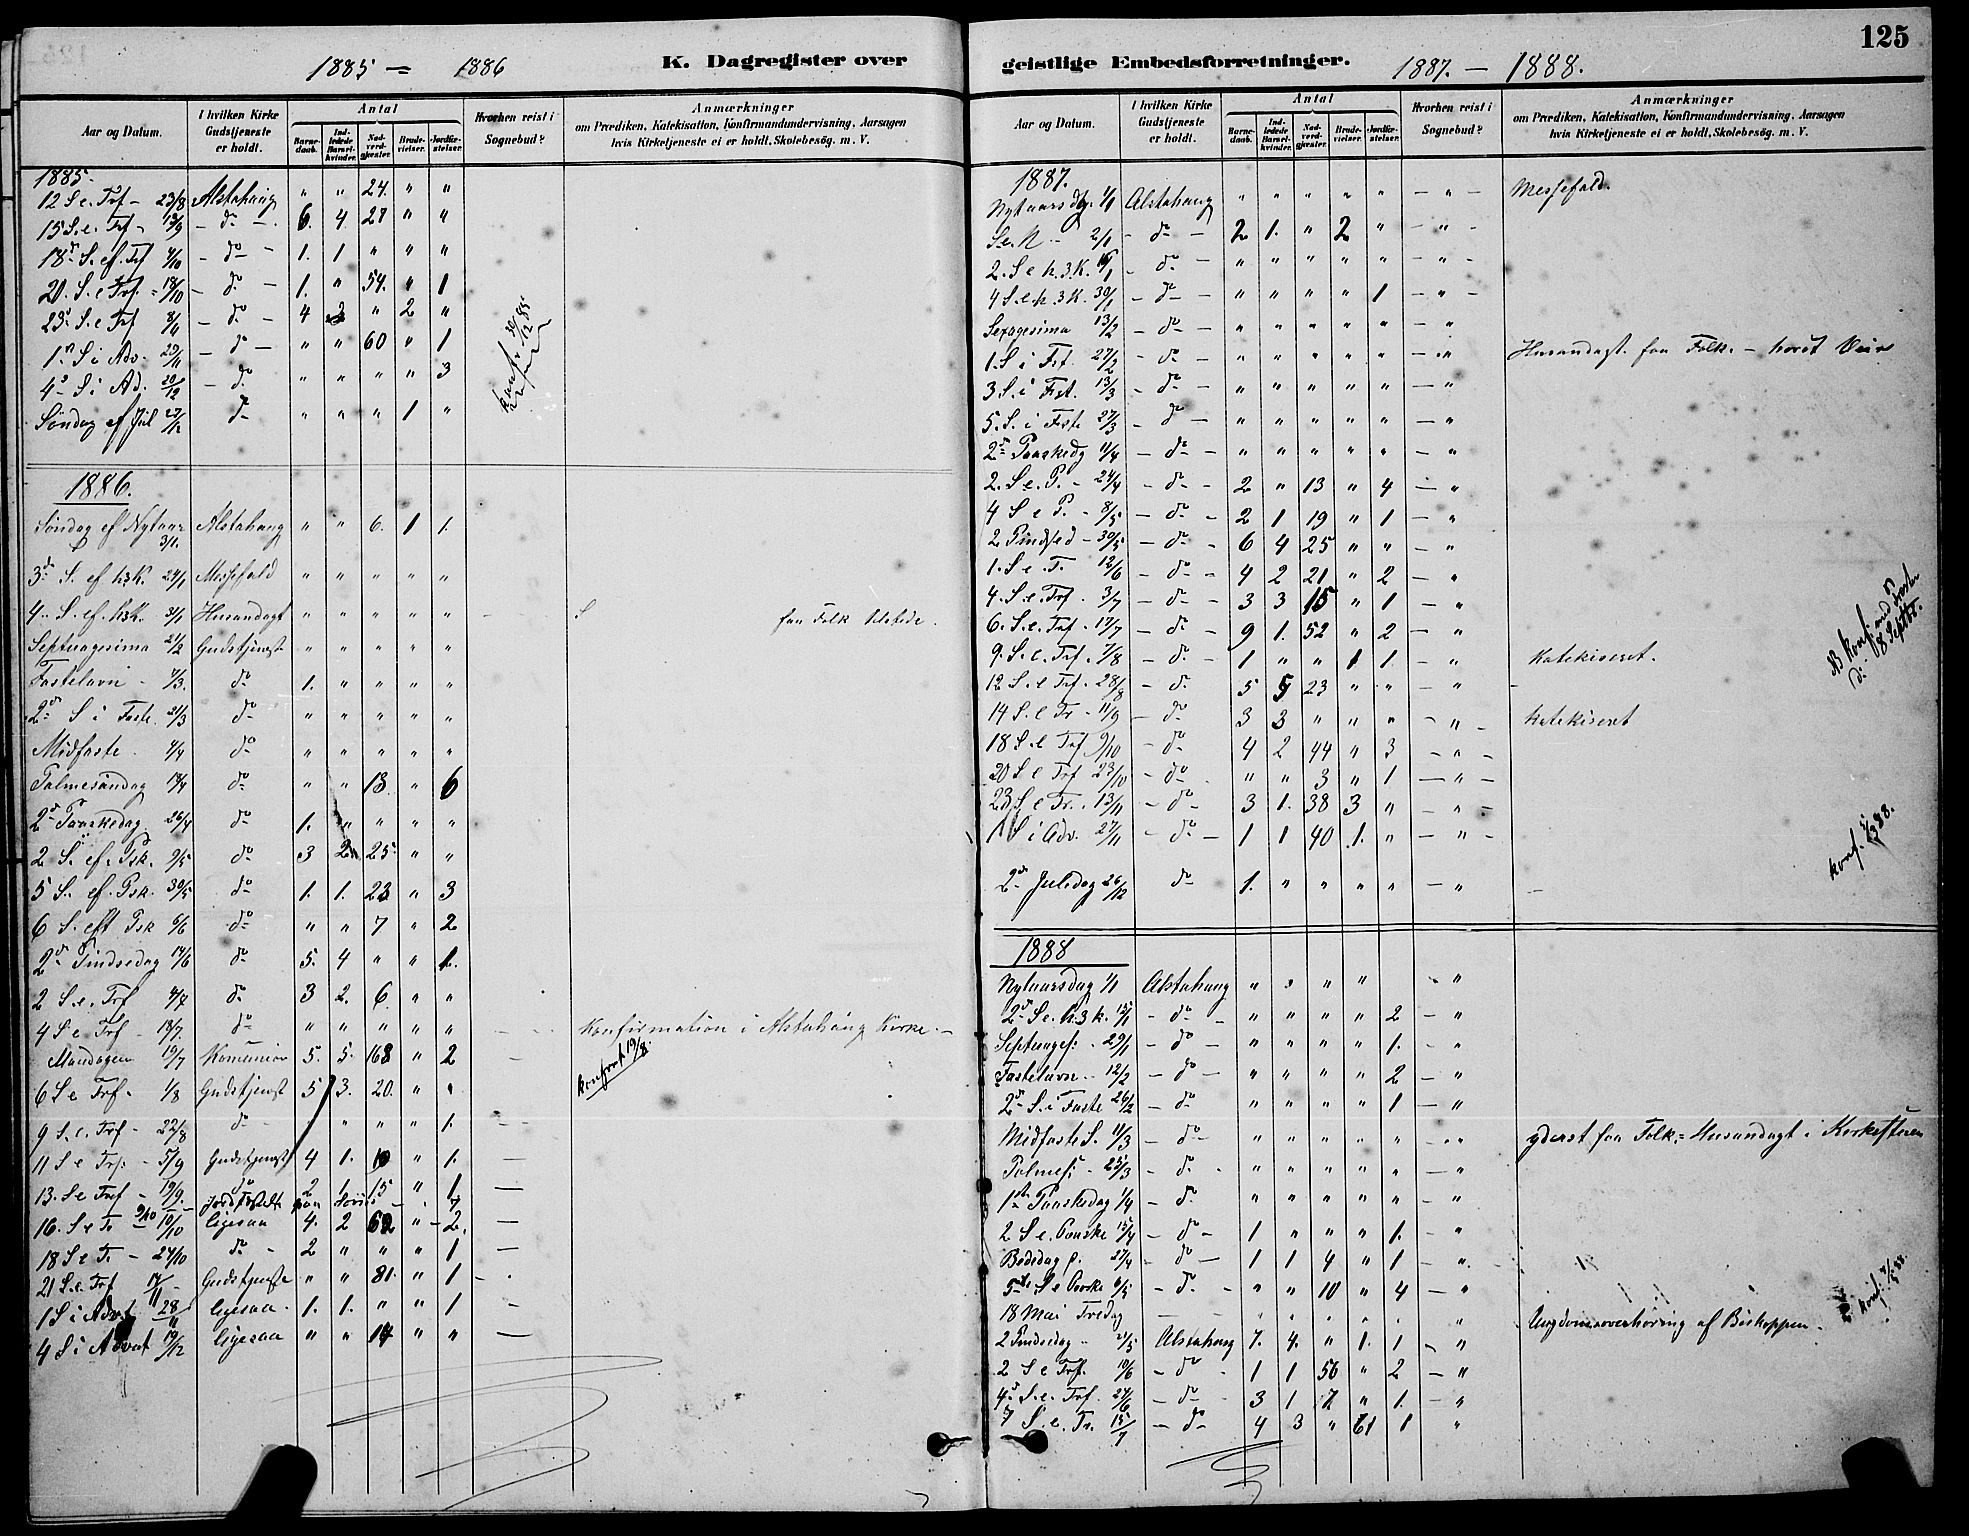 125
1885 = 1886
K. Dagregister over
geistlige Embedsforretninger.
1887. — 1888.
Aar og Datum. I hvilken Kirke Gudstjeneste er holdt. Antal Barnedaab. Indledede Barselkvinder. Nadverdgjæster. Brudevielser. Jordfæstelser. Hvorhen reist i Sognebud? Anmærkninger om Prædiken, Katekisation, Konfirmandundervisning, Aarsagen hvis Kirketjeneste ei er holdt, Skolebesøg. m. V.
1885.
12 S e. Trf - 23/8 Alstahaug " " 24. " "
15 S. e. Trf - 13/9 - do - 6. 4 28 " "
18de S. ef. Trf 4/10 - do - 1. 1 " " "
20. S. e Trf. - 18/10 - do - 1. " 54. " 1
23de S. e Trf 8/11 - do - 4 3 " 2 "
1ste S i Adv. 29/11 - do - " " 60 " 1
4de S i Ad. 20/12 - do " " " " 3
Søndag ef Jul 27/12 do " " " 1 "
1886.
Søndag ef Nytaar 3/1. Alstahaug " " 6. 1 1.
3de S. ef h3K. 24/1 Messefald " " " " "
4. S. ef. h3K. 31/1 Husandagt " " " " " faa Folk tilstede.
Septuagesima 21/2 Gudstjenst " " " " "
Fastelavn - 7/3. do 1. " " " "
2den S i Faste. 21/3 do " " " " "
Midfaste. 4/4 do " " " " "
Palmesøndag 18/4 do " " 13. " 6
2den Paaskedag 26/4 do 1. " " " "
2 S. ef. Psk. 9/5 do 3 2 25. " "
5 S. ef. Psk. 30/5 do 1. 1. 23 " 3
6 S. eft Psk 6/6 do " " 7 " 2
2den Pindsedag 14/6 do 5. 4 " " 1.
2 S. e. Trf 4/7 do 3 2. 6. " "
4 S e Trf - 18/7. do " " " " " Konfirmation i Alstahaug Kirke. -
Mandagen 19/7 Komunion 5. 5. 168 " 2
konfront. 19/8.
6 S e Trf. 1/8 Gudstjenst 5 3. 20. " "
9 S. e. Trf - 22/8 do - " " " 1.
11 S e Trf. - 5/9 Gudstjenst 4 1. 10 " 1.
13. S e Tref - 19/9. do 2 1 15 " 1
16. S e Tr 10/10 ligesaa 4. 2 62 " 2.
18 S e Tr - 24/10 do - 2 " " " 1
21 S. e. Trf 14/11 Gudstjenste " " 81. " 1
1 S i Advt 28/11 ligesaa. 1. 1. " " 1
4 S i Advent 19/12 ligesaa " " 14 " "
Aar og Datum. I hvilken Kirke Gudstjeneste er holdt. Antal Barnedaab. Indledede Barselkvinder. Nadverdgjæster. Brudevielser. Jordfæstelser. Hvorhen reist i Sognebud? Anmærkninger om Prædiken, Katekisation, Konfirmandundervisning, Aarsagen hvis Kirketjeneste ei er holdt, Skolebesøg. m. V.
1887.
Nytaarsdg. 1/1 Alstahaug " " " " " - " - Messefald.
S. e. N - 2/1 - do - 2 1. " 2 " - " -
2. S e h. 3. K. 16/1 - do " " " " " - " -
4 S. e h. 3 K. 30/1 - do - " " " " 1 - " -
Sexagesima 13/2 - do - " " " " " - "
1. S i Fst. 27/2 - do - " " " " " - " Husandagt. faa Folk. - Veir
3 S. i Fst. 13/3 - do - " " " " " - "
5. S. i Fste 27/3 - do - " " " " " - "
2den Paaskedg 11/4 - do - " " " " " - "
2. S. e. P. - 24/4 - do - 2 " 13 " 4 - "
4 S e P. - 8/5 - do - 2 1 19 " 1 - "
2 Pindsed - 30/5 - do - 6 4 25 " " - "
1. S e. T. 12/6 - do - 4 2 21 " 2 - "
4. S. e. Trf. 3/7 - do - 3 3 15 " 1 - "
6. S. e. Trf. 17/7 - do - 9 1. 52 " 2 - "
9. S. e. Trf. 7/8 - do - 1 " " 1 1. - " Katekiseret.
12 S. e Trf. 28/8 - do 5 5 23 " " - "
14 S. e Tr - 11/9 - do 3 3 " " " - " - Katekiseret
18 S. e Trf 9/10 - do 4 2 44 " 3 - " -
20 S e Trf 23/10 - do - " " 3 " 1 - " -
23 S e Tr. 13/11 - do - 3 1. 38 3 " - " -
1 S i Adv. 27/11 - do - 1 1 40 1. " - " -
2den Juledag 26/12 do 1. " " " " - "
konf. 88.
1888
Nytaarsdag 1/1 Alstahaug " " " " "
2den S e. h. 3 k. 15/1 - do - " " " " 2 - "
Septuages: 29/1 - do - " " " " 1. - "
Fastelavn - 12/2 - do - " " " " 2 - "
2den S. i Faste 26/2 - do " " " " 1 - "
Midfaste S. 11/3 - do - " " " " " " yderst faa Folk. = Husandagt i Kirkestuen
Palmes: - 25/3 - do - " " " " " - "
1ste Paaskedag 1/4 - do " " " " " - "
2 S e. Paaske 15/4 - do - 1 " " " 1. - "
Bededag 27/4 - do - 1 1 4 " 1 - "
5te S e Paaske 6/5 - do - " " 10 " 4 - "
18 Mai Fredag " " " " " " Ungdomsoverhøring af Biskoppen.
2 Pindsedag 21/5 Alstahaug 7. 4. " 1. 1 - "
2 S e Trf. 10/6 - do - 1 1 56 " 2 - "
4de S. e. Trf. 24/6 - do - 3 1 7 " 1. - "
7 S. e. Tr. 15/7 - do - 4 3 " 61 1 "